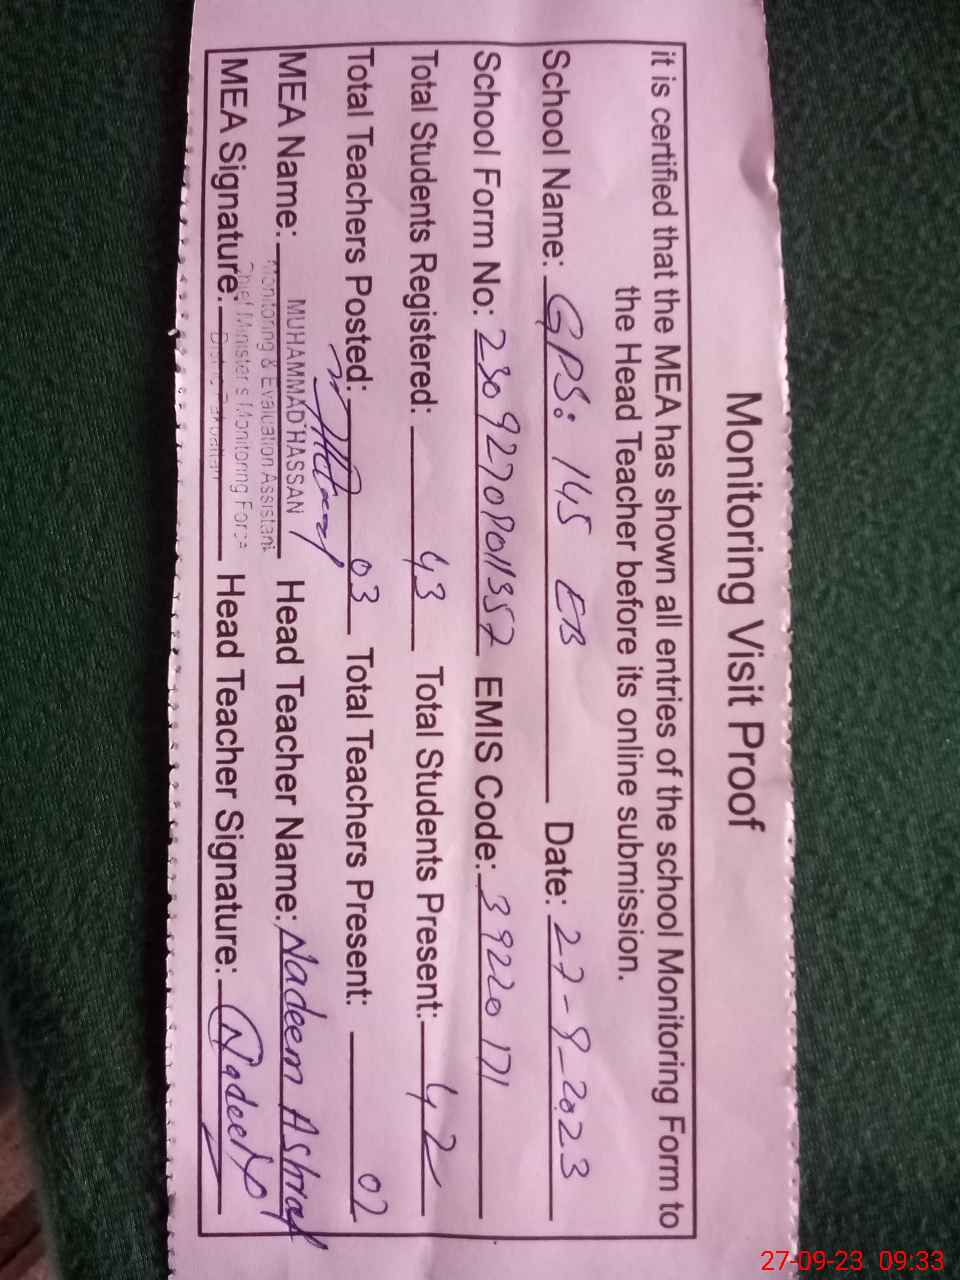 Monitoring Visit Proof
it is certified that the MEA has shown all entries of the school Monitoring Form to
the Head Teacher before its online submission.
School Name: GPS: 145 EB Date: 27-9-2023
School Form No: EMIS Code: 39220171
Total Students Registered: 43 Total Students Present: 42
Total Teachers Posted: 03 Total Teachers Present: 02
MEA Name: MUHAMMAD HASSAN Head Teacher Name: Nadeem Ashraf
Monitoring & Evaluation Assistant
Chief Minister's Monitoring Force
MEA Signature: District Pakpattan Head Teacher Signature: Nadeem
27-09-23 09:33